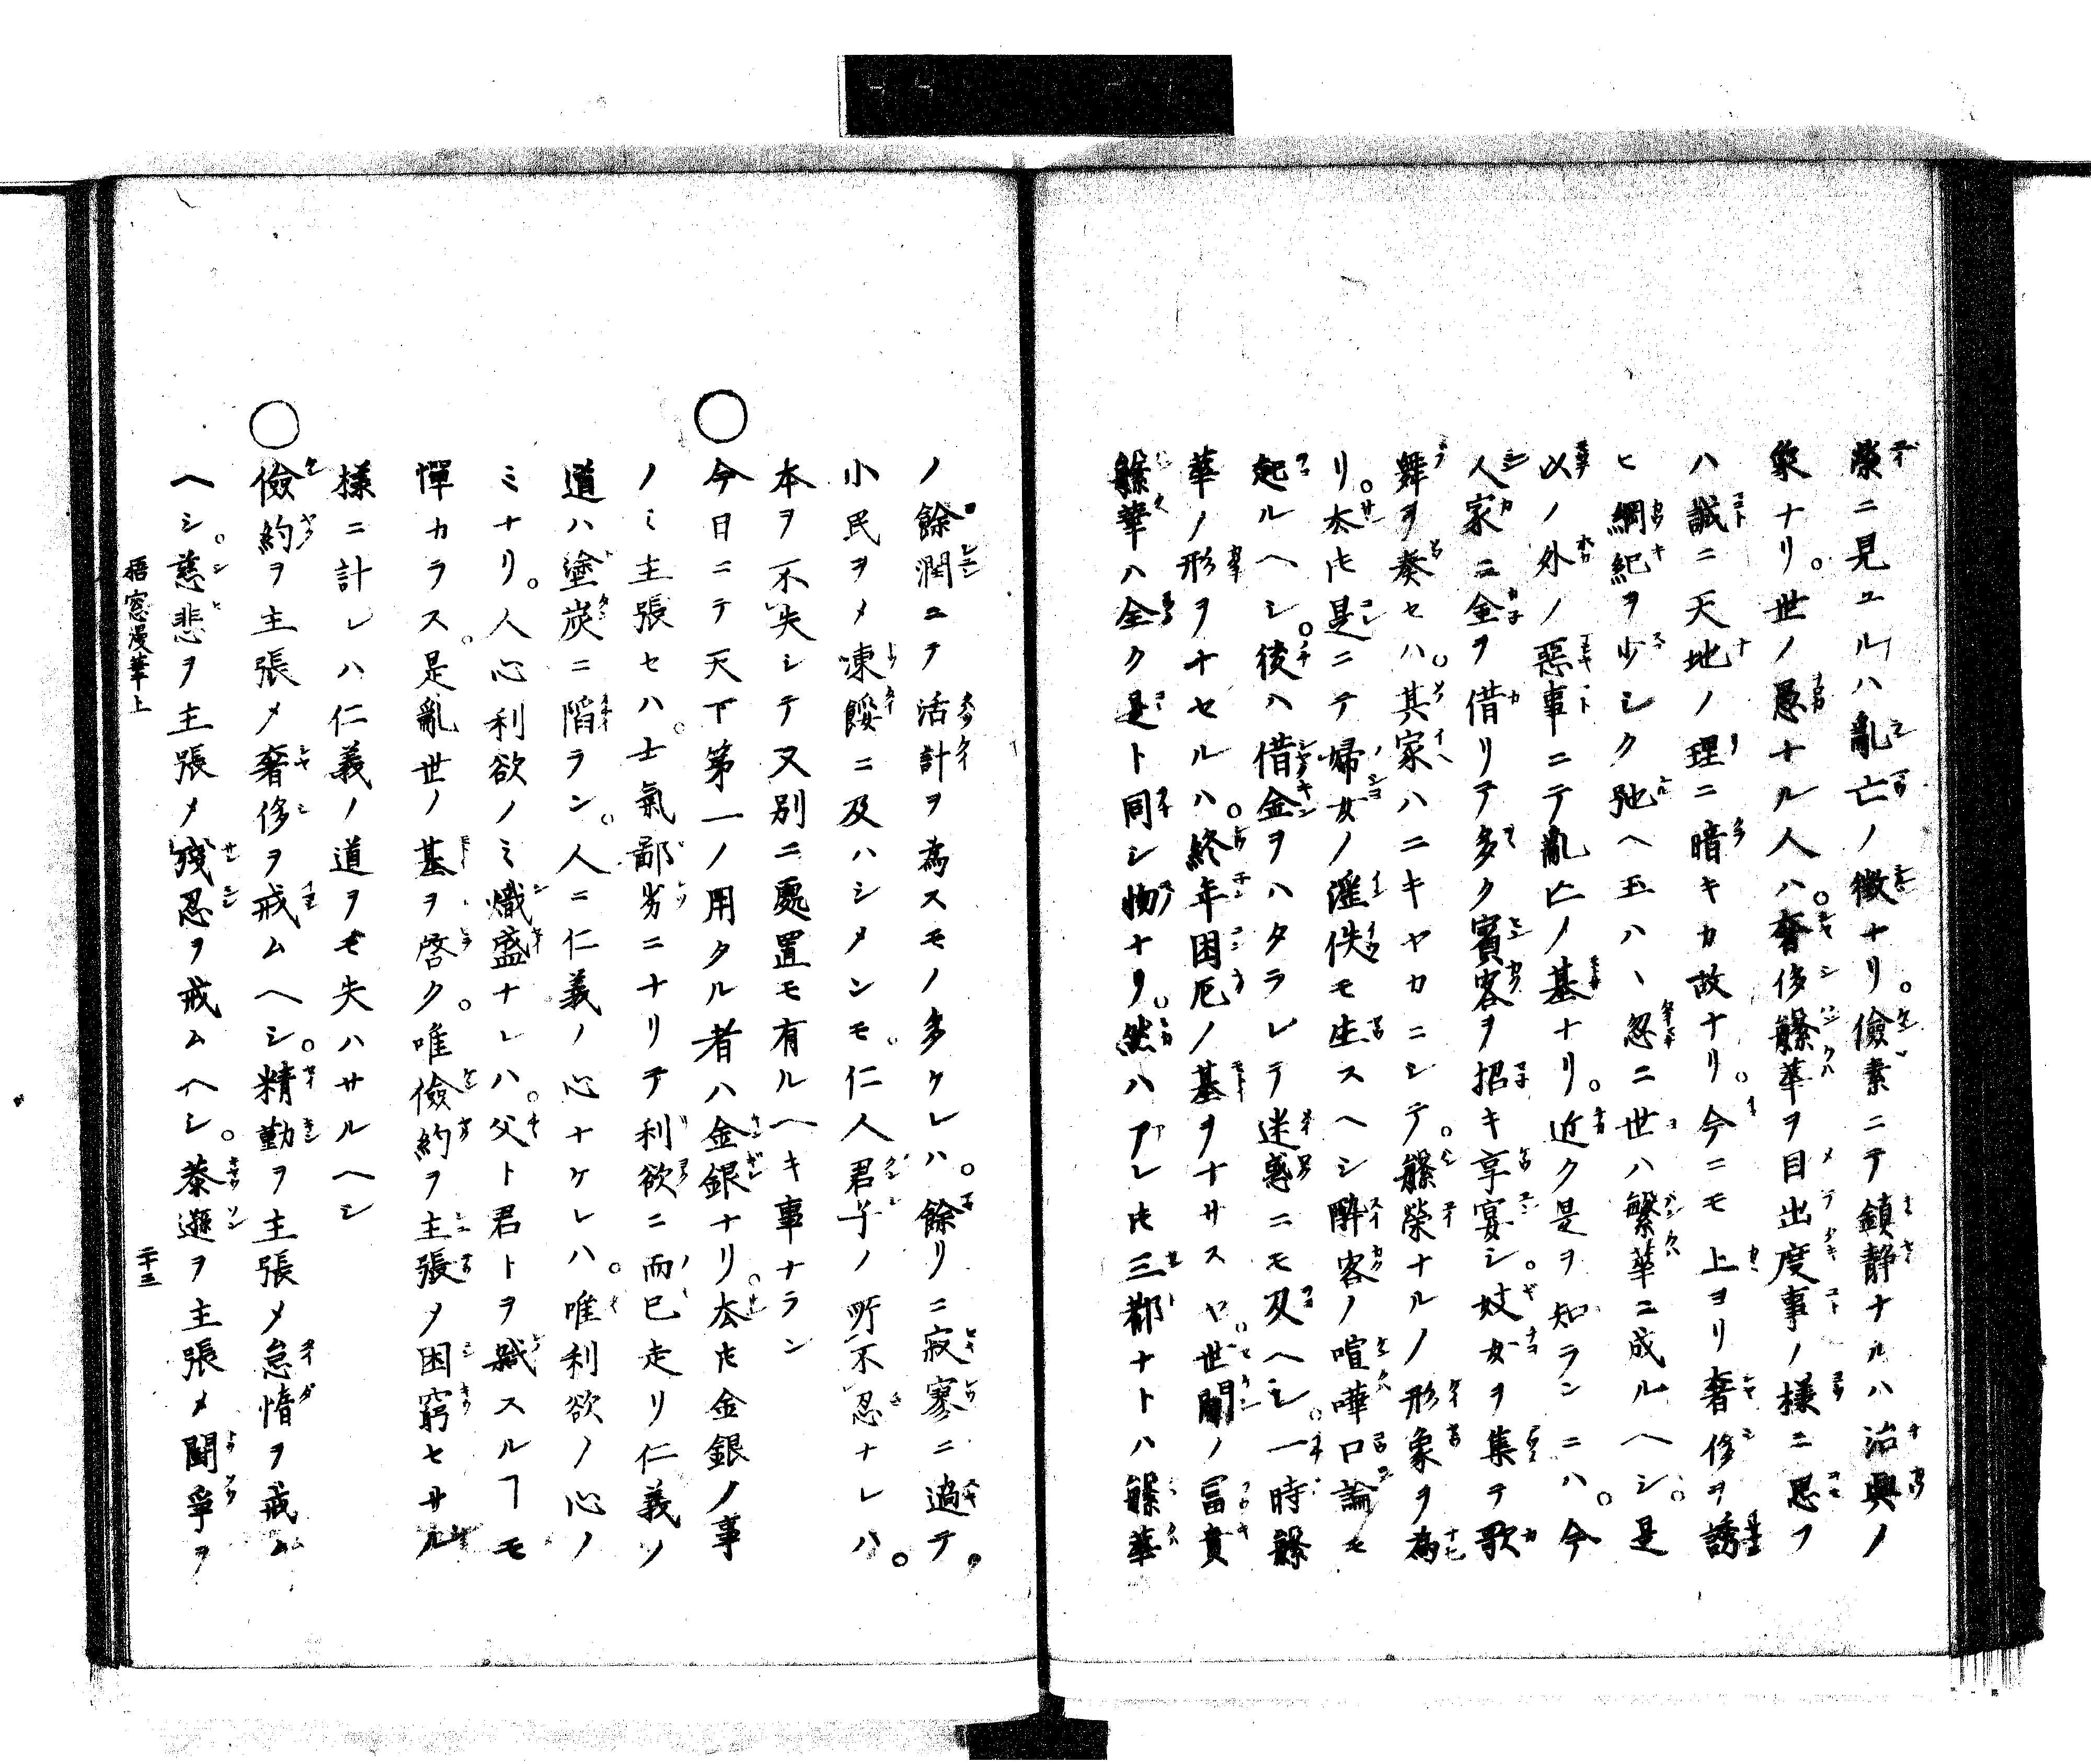 榮ニ見ユルハ亂亡ノ徴ナリ。儉素ニテ鎮静ナルハ治興ノ
象ナリ。世ノ愚ナル人ハ。奢侈緐華ヲ目出度事ノ様ニ思フ
ハ誠ニ天地ノ理ニ暗キカ故ナリ。今ニモ上ヨリ奢侈ヲ誘
ヒ綱紀ヲ少シク弛ヘ玉ハヽ忽ニ世ハ繁華ニ成ルヘシ。是
以ノ外ノ惡事ニテ亂亡ノ基ナリ。近ク是ヲ知ランニハ。今
人家ニ金ヲ借リテ多ク賓客ヲ招キ享宴シ。妓女ヲ集テ歌
舞ヲ奏セハ。其家ハニキヤカニシテ。緐榮ナルノ形象ヲ為
リ。左𪜈是ニテ婦女ノ淫佚モ生スヘシ醉客ノ喧嘩口論モ
起ルヘシ。後ハ借金ヲハタラレテ迷惑ニモ及ヘシ。一時緐
華ノ形ヲナセルハ。終年困厄ノ基ヲナサスヤ。世間ノ冨貴
緐華ハ全ク是ト同シ物ナリ。然ハアレ𪜈三都ナトハ緐華
ノ餘潤ニテ活計ヲ為スモノ多ケレハ。餘リニ寂寥ニ過テ。
小民ヲ〆凍餒ニ及ハシメンモ。仁人君子ノ所不忍ナレハ。
本ヲ不失シテ又別ニ處置モ有ルヘキ事ナラン
○今日ニテ天下第一ノ用タル者ハ金銀ナリ。左𪜈金銀ノ事
ノミ主張セハ。士氣鄙劣ニナリテ利欲ニ而已走リ仁義ノ
道ハ塗炭ニ陷ラン。人ニ仁義ノ心ナケレハ。唯利欲ノ心ノ
ミナリ。人心利欲ノミ熾盛ナレハ。父ト君トヲ弑スルヿモ
憚カラス。是亂世ノ基ヲ啓ク。唯儉約ヲ主張〆困窮セサル
様ニ計レハ仁義ノ道ヲモ失ハサルヘシ
○儉約ヲ主張〆奢侈ヲ戒ムヘシ。精勤ヲ主張〆怠惰ヲ戒ム
ヘシ。慈悲ヲ主張〆殘忍ヲ戒ムヘシ。恭遜ヲ主張〆鬪爭ヲ
梧窓漫筆上
二十三